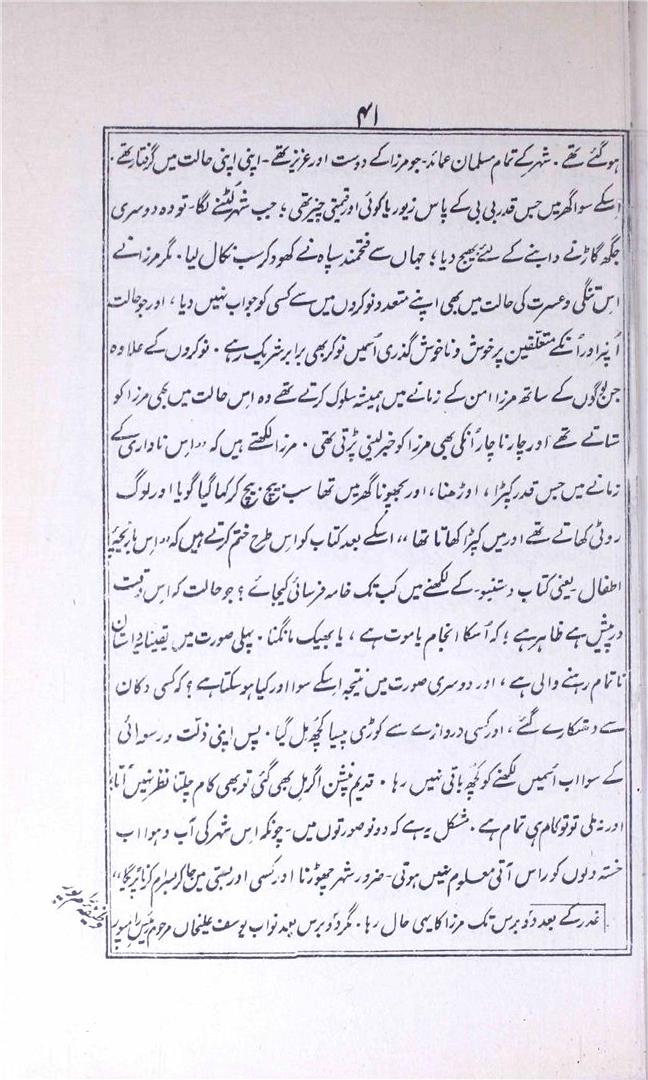 ۴۱
ہوگئے تھے ۔ شہر کے تمام مسلمان عمائد ۔ جو مرزا کے دوست اور عزیز تھے ۔ اپنی اپنی حالت میں گرفتار تھے ۔
اِسکے سوا گھر میں جس قدر بی بی کے پاس زیور یا کوئی اور قیمتی چیز تھی ؛ جب شہر لُٹنے لگا ۔ تو وہ دوسری
جگھ گاڑنے دابنے کے لئے بھیج دیا ؛ جہاں سے فتحمند سپاہ نے کھود کر سب نکال لیا ۔ مگر مرزا نے
اس تنگی و عسرت کی حالت میں بھی اپنے متعدد نوکروں میں سے کسی کو جواب نہیں دیا ، اور جو حالت
اُنپر اور اُنکے متعلّقین پر خوش و ناخوش گذری اُسمیں نوکر بھی برابر شریک رہے ۔ نوکروں کے علاوہ
جن لوگوں کے ساتھ مرزا امن کے زمانے میں ہمیشہ سلوک کرتے تھے وہ اِس حالت میں بھی مرزا کو
ستاتے تھے اور چار ناچار اُنکی بھی مرزا کو خبر لینی پڑتی تھی ۔ مرزا لکھتے ہیں کہ ”اِس ناداری کے
زمانے میں جس قدر کپڑا ، اوڑھنا ، اور بچھونا گھر میں تھا سب بیچ بیچ کر کھا گیا گویا اور لوگ
روٹی کھاتے تھے اور میں کپڑا کھاتا تھا“ اسکے بعد کتاب کو اس طرح ختم کرتے ہیں کہ ”اِس بازیچۂ
اطفال یعنی کتاب دستنبو ۔ کے لکھنے میں کب تک خامہ فرسائی کیجائے ؟ جو حالت کہ اس وقت
درپیش ہے ظاہر ہے ؛ کہ اُسکا انجام یا موت ہے ، یا بھیک مانگنا ۔ پہلی صورت میں یقیناً یہ داستان
ناتمام رہنے والی ہے ، اور دوسری صورت میں نتیجہ اِسکے سوا اور کیا ہوسکتا ہے ؟ کہ کسی دکان
سے دھتکارے گئے ، اور کسی دروازے سے کوڑی پیسا کچھ مِل گیا ۔ پس اپنی ذلّت و رسوائی
کے سوا اب اُسمیں لکھنے کو کُچھ باقی نہیں رہا ۔ قدیم پنشن اگر مل بھی گئی تو بھی کام چلتا نظر نہیں آتا ؛
اور نہ ملی تو تو کام ہی تمام ہے ۔ مشکل یہ ہے کہ دونو صورتوں میں ۔ چونکہ اِس شہر کی آب و ہوا اب
خستہ دلوں کو راس آتی معلوم نہیں ہوتی ۔ ضرور شہر چھوڑنا اور کسی اور بستی میں جاکر بسرام کرنا پڑیگا“
غدر کے بعد دو برس تک مرزا کا یہی حال رہا ۔ مگر دو برس بعد نواب یوسف علیخاں مرحوم رئیس رامپور